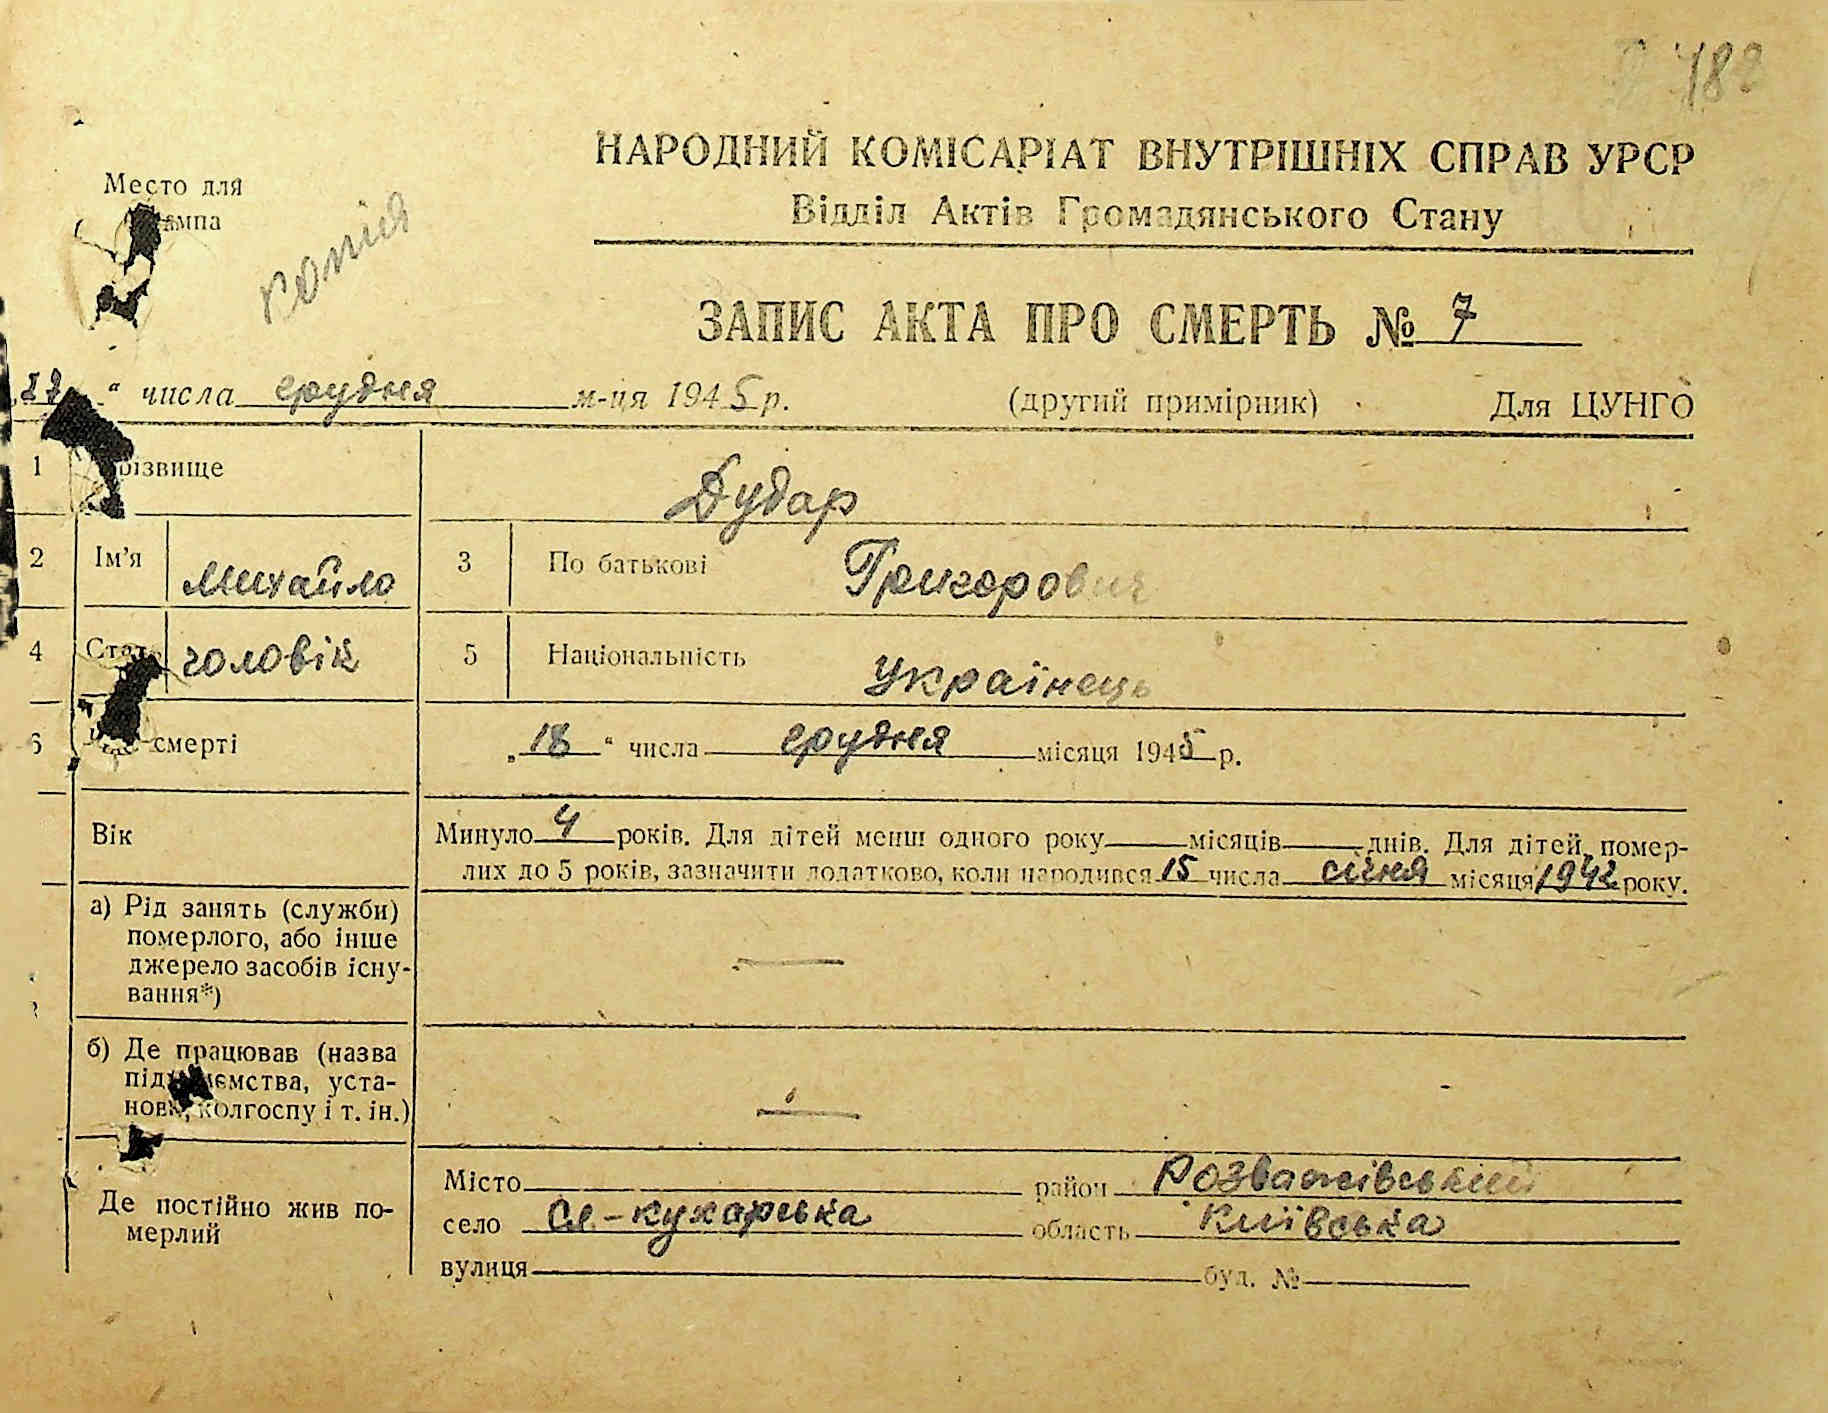 188
Место для
копія
НАРОДНИЙ КОМІСАРІАТ ВНУТРІШНІХ СПРАВ УРСР
Відділ Актів Громадянського Стану
ЗАПИС АКТА ПРО СМЕРТЬ № 7
“ числа грудня м-ця 1945 р. (другий примірник) Для ЦУНГО
1 Прізвище Дудар
2 Ім'я Михайло 3 По батькові Григорович
4 Стать чоловік 5 Національність Українець
6 Час смерті „18“ числа грудня місяця 1945 р.
Вік Минуло 4 років. Для дітей менш одного року місяців днів. Для дітей, помер-
лих до 5 років, зазначити додатково, коли народився 15 числа січня місяця 1942 року.
а) Рід занять (служби)
померлого, або інше
джерело засобів існу-
вання*) —
б) Де працював (назва
підприємства, уста-
нови, колгоспу і т. ін.) —
Де постійно жив по-
мерлий
Місто район Розважівський
село Ст-кухарська область Київська
вулиця буд. №